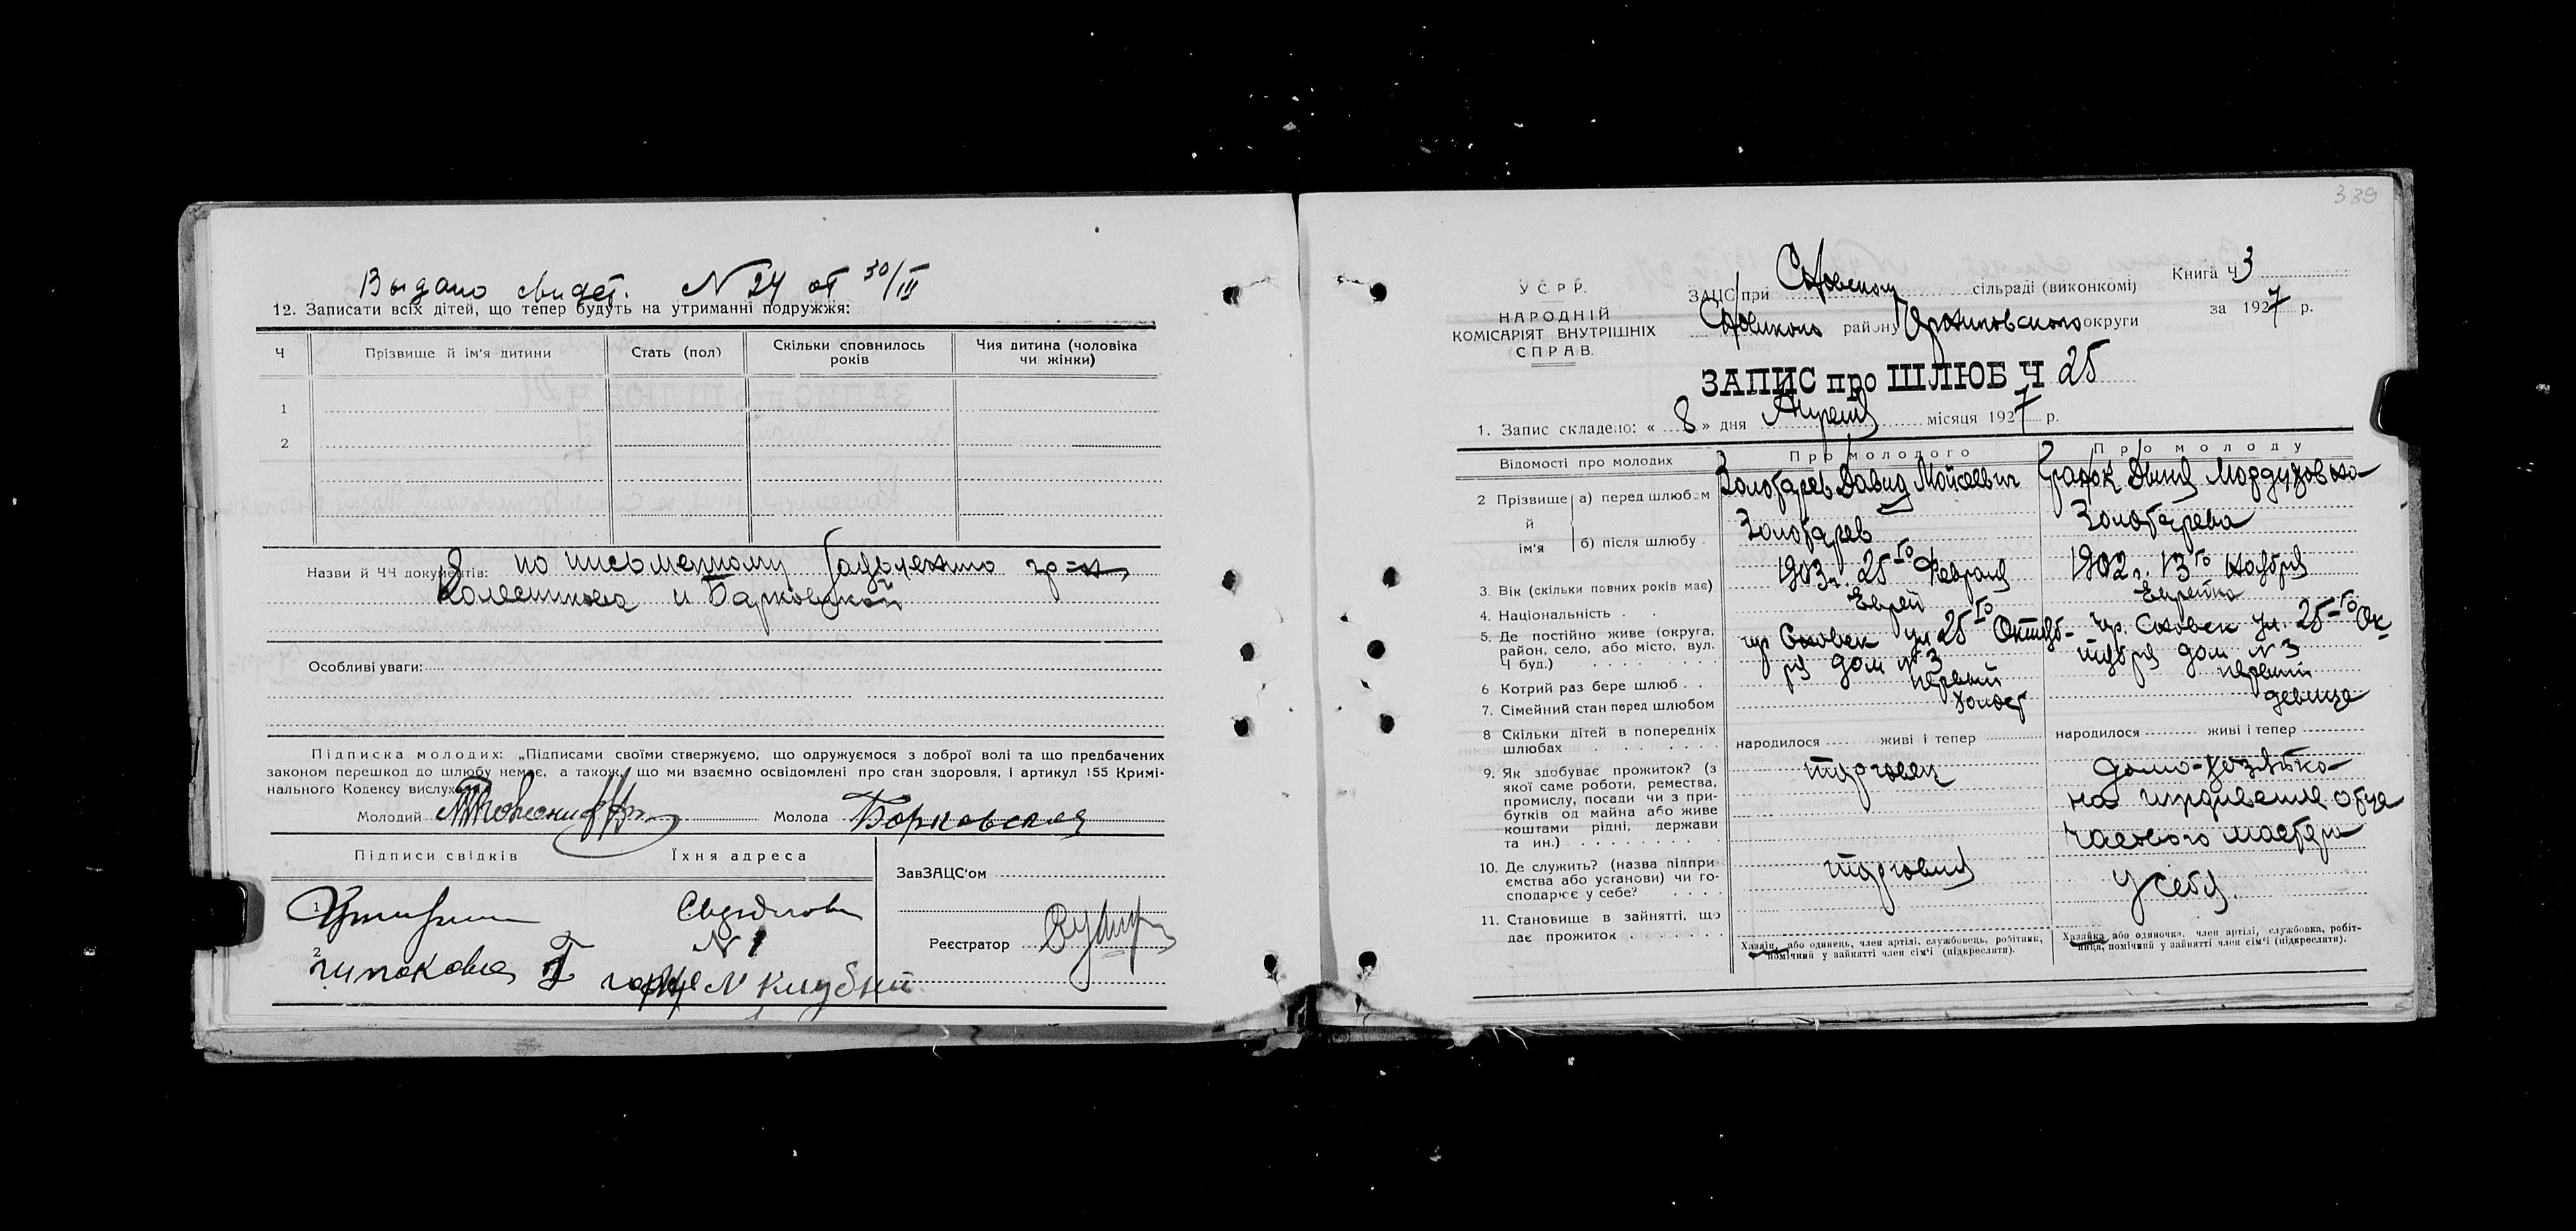 Выдано свидет. N 24 от 30/III
12. Записати всіх дітей, що тепер будуть на утриманні подружжя:
Ч Прізвище й ім'я дитини Стать (пол) Скільки сповнилось років Чия дитина (чоловіка чи жінки)
1
2
Назви й ЧЧ документів: по письменному гр-н
Колесникова и Барковской
Особливі уваги:
Підписка молодих: „Підписами своїми стверджуємо, що одружуємося з доброї волі та що предбачених
законом перешкод до шлюбу немає, а також, що ми взаємно освідомлені про стан здоровля, і артикул 155 Кримі-
нального Кодексу вислух
Молодий Молода Борковская
Підписи свідків Їхня адреса
ЗавЗАЦС'ом
1
N 1
Реєстратор
2
339
УСРР.
НАРОДНІЙ
КОМІСАРІЯТ ВНУТРІШНІХ
СПРАВ.
ЗАЦС при сільраді (виконкомі)
району округи
Книга Ч 3
за 1927 р.
ЗАПИС про ШЛЮБ Ч 25
1. Запис складено: « 8 » дня Апреля місяця 1927 р.
Відомості про молодих Про молодого Про молоду
2 Прізвище й ім'я а) перед шлюбом Золотарев Давид Мойсеевич Мордуховна
б) після шлюбу Золотарев Золотарева
3. Вік (скільки повних років має) 1903 г. 25го Февраля 1902 г. 13го Ноября
4. Національність Еврей Еврейка
5. Де постійно живе (округа, район, село, або місто, вул. Ч буд.) ул 25го Октяб-
ря дом № 3
ул. 25-го Ок
тября дом N 3
6 Котрий раз бере шлюб первый первый
7. Сімейний стан перед шлюбом холост девица
8 Скільки дітей в попередніх шлюбах народилося живі і тепер народилося живі і тепер
9. Як здобуває прожиток? (з якої саме роботи, ремества, промислу, посади чи з прибутків од майна або живе коштами рідні, держави та ин.) торговец домо-хозяйка
на иждивение отца
часового мастера
10. Де служить? (назва підприємства або установи) чи господарює у себе? торговля у себя.
11. Становище в зайнятті, що дає прожиток
Хазяін, або одинець, член артілі, службовець, робітник, помічний у зайнятті член сім'ї (підкреслити).
Хазяйка або одиночка, член артілі, службовка, робітниця, помічний у зайнятті член сім'ї (підкреслити).